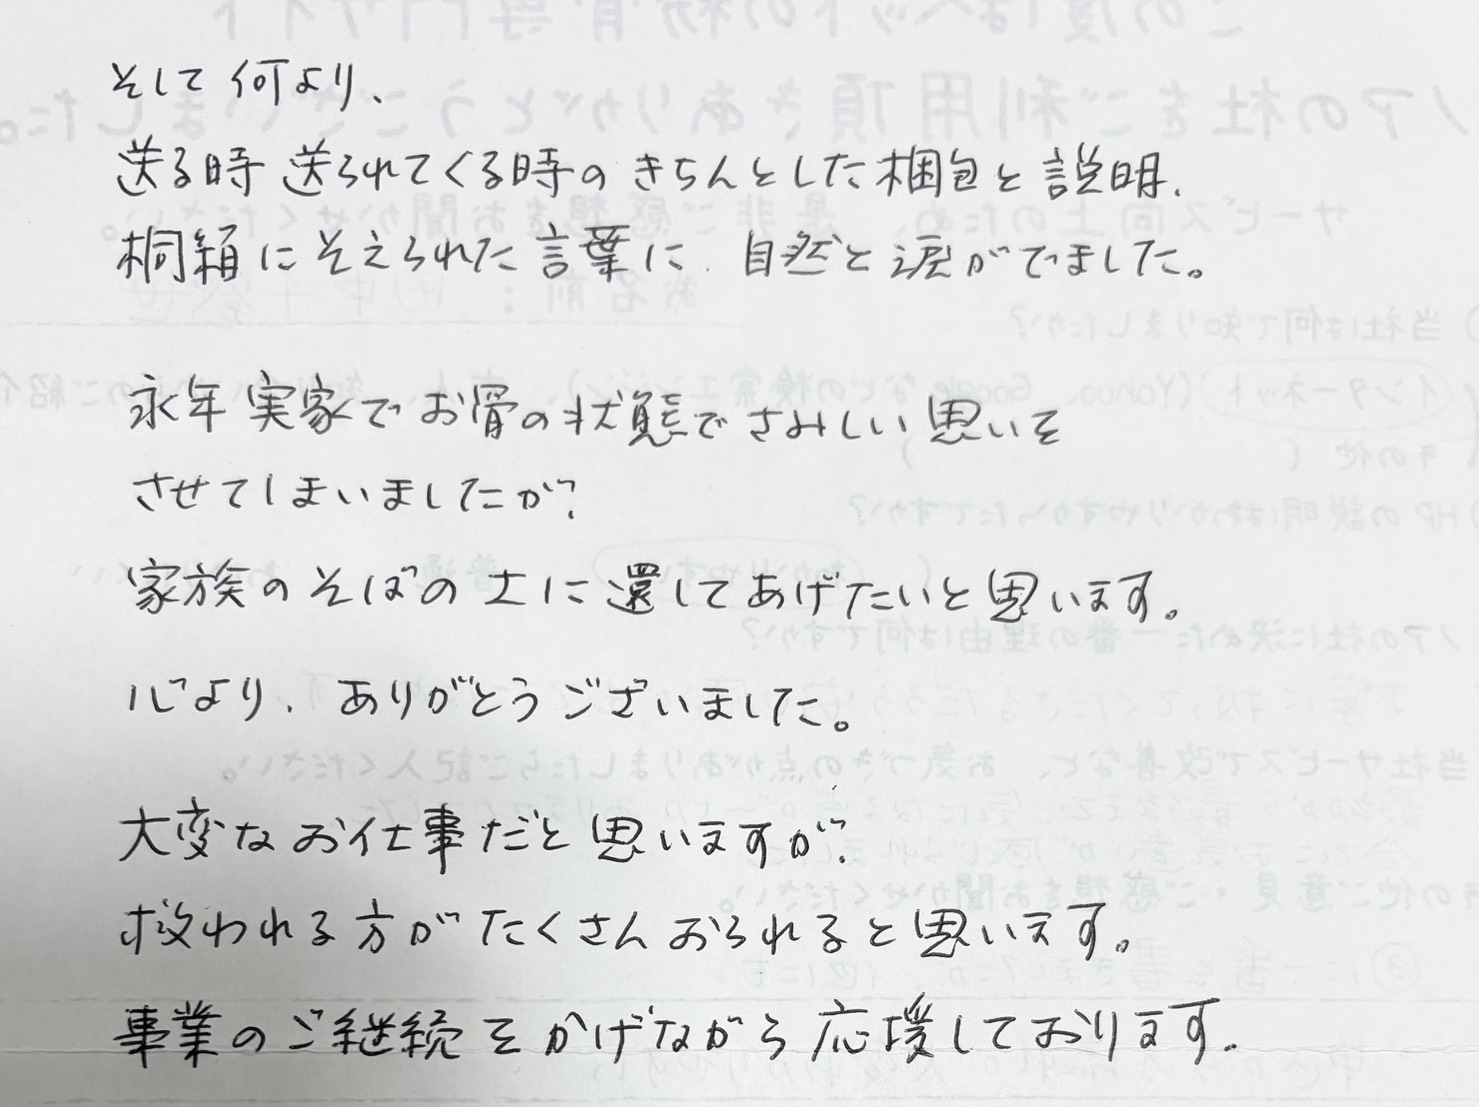 そして何より、
送る時 送られてくる時の きちんとした梱包と説明、
桐箱にそえられた言葉に、自然と涙がでました。
永年 実家で お骨の状態でさみしい思いを
させてしまいましたが、
家族のそばの土に還してあげたいと思います。
心より、ありがとうございました。
大変なお仕事だと思いますが、
救われる方がたくさんおられると思います。
事業のご継続をかげながら応援しております。